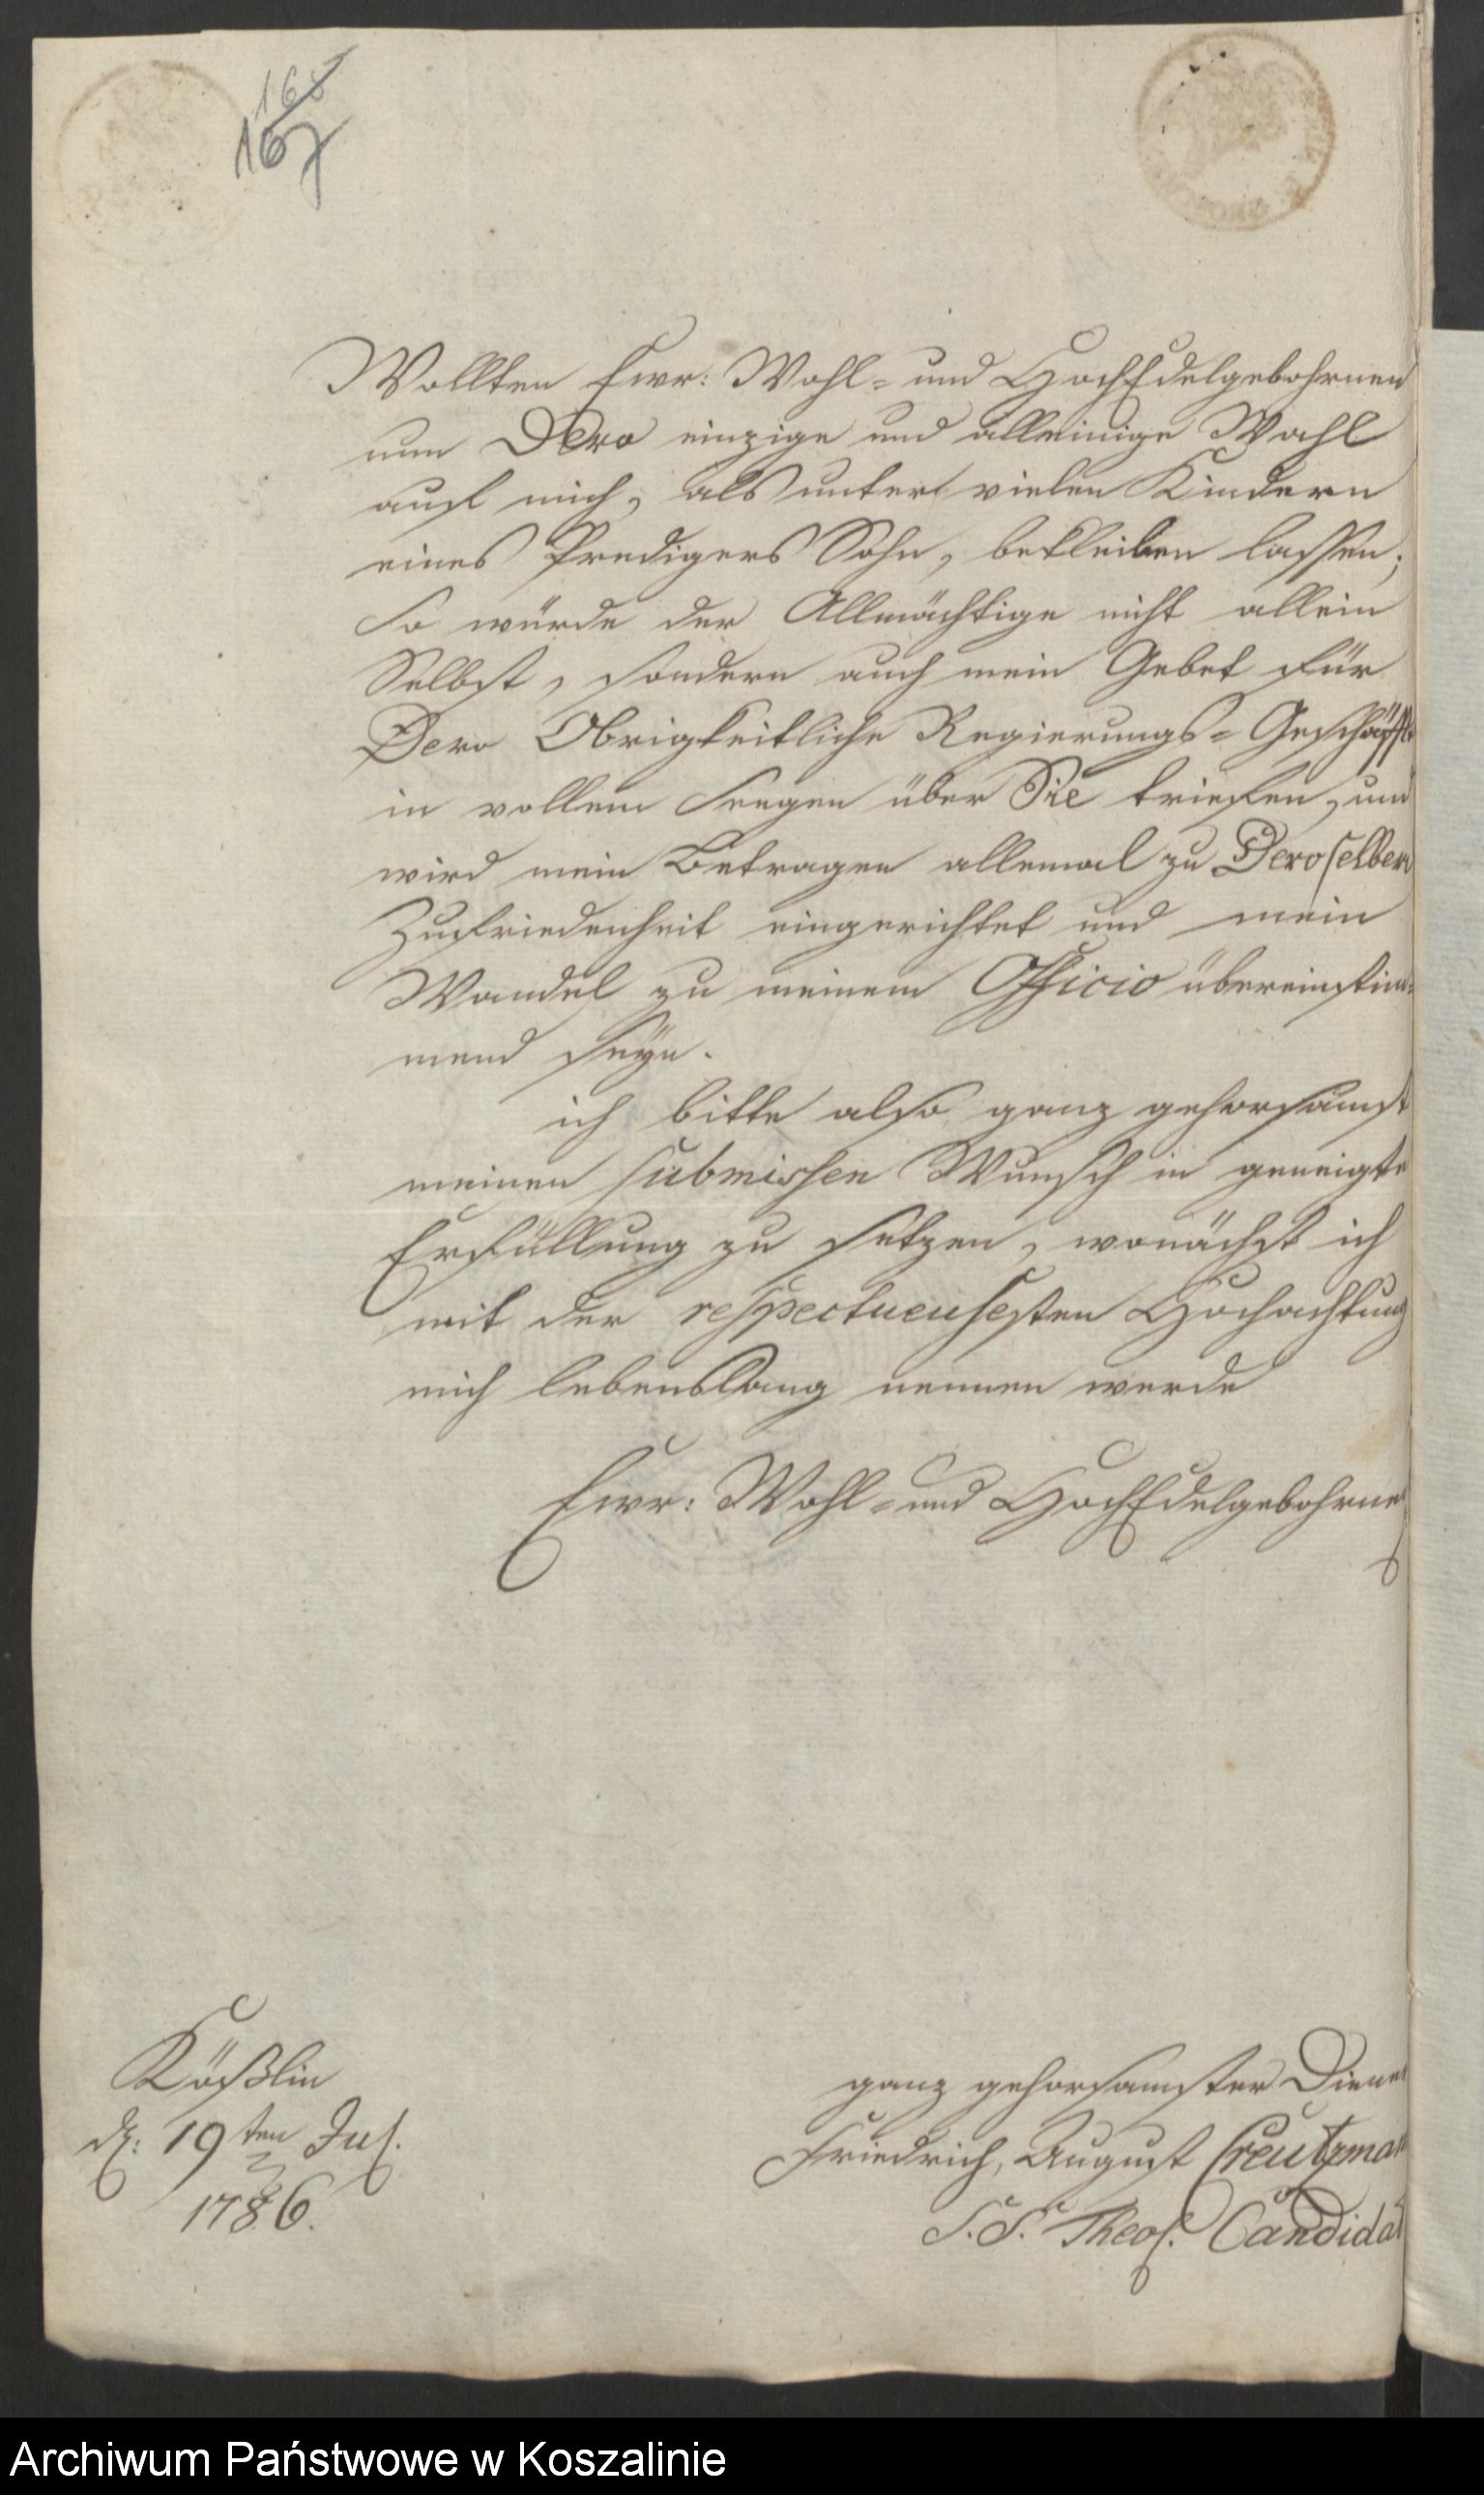 168
167
Wollten Ewr: Wohl= und HochEdelgebohrnen
nun Dero einzige und alleinige Wahl
auf mich, als unter vielen Kindern
eines Predigers Sohn, bekleiben lassen;
So würde der Allmächtige nicht allein
Selbst, sondern auch mein Gebet für
Dero Obrigkeitliche Regierungs=Geschäffte
in vollem Seegen über Sie triefen, und
wird mein Betragen allemal zu Deroselben
Zufriedenheit eingerichtet und mein
Wandel zu meinem Officio übereinstim=
mend seyn.
ich bitte also ganz gehorsamst
meinen submissen Wunsch in geneigte
Erfüllung zu setzen, wonächst ich
mit der respectueusesten Hochachtung
mich lebenslang nennen werde
Ewr: Wohl= und HochEdelgebohrnen
Cößlin
d: 19ten Jul.
1786.
ganz gehorsamster Diener
Friedrich, August Creutzman
S. S. Theol. Candidat
Archiwum Państwowe w Koszalinie